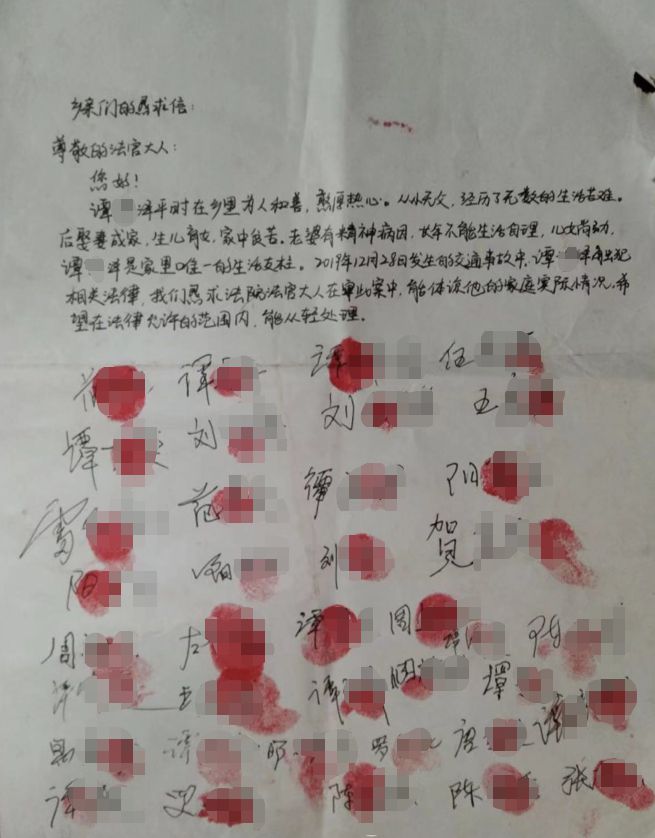 乡亲们的恳求信:
尊敬的法官大人:
您好!
谭 洋平时在乡里为人和善,憨厚热心。从小无父,经历了无数的生活苦难。
后娶妻成家,生儿育女,家中贫苦。老婆有精神病因,长年不能生活自理,儿女尚幼,
谭 洋是家里唯一的生活支柱。2019年12月28日发生的交通事故中,谭 洋触犯
相关法律,我们恳求法院法官大人在审此案中,能体谅他的家庭实际情况,希
望在法律允许的范围内,能从轻处理。
谭 谭 伍
刘 王
谭 刘
雷 范 谭 阳
阳 刘 贺
周 左 谭 周 陈
王 谭 谭
易 谭 罗 唐 谭
谭 陈 陈 张